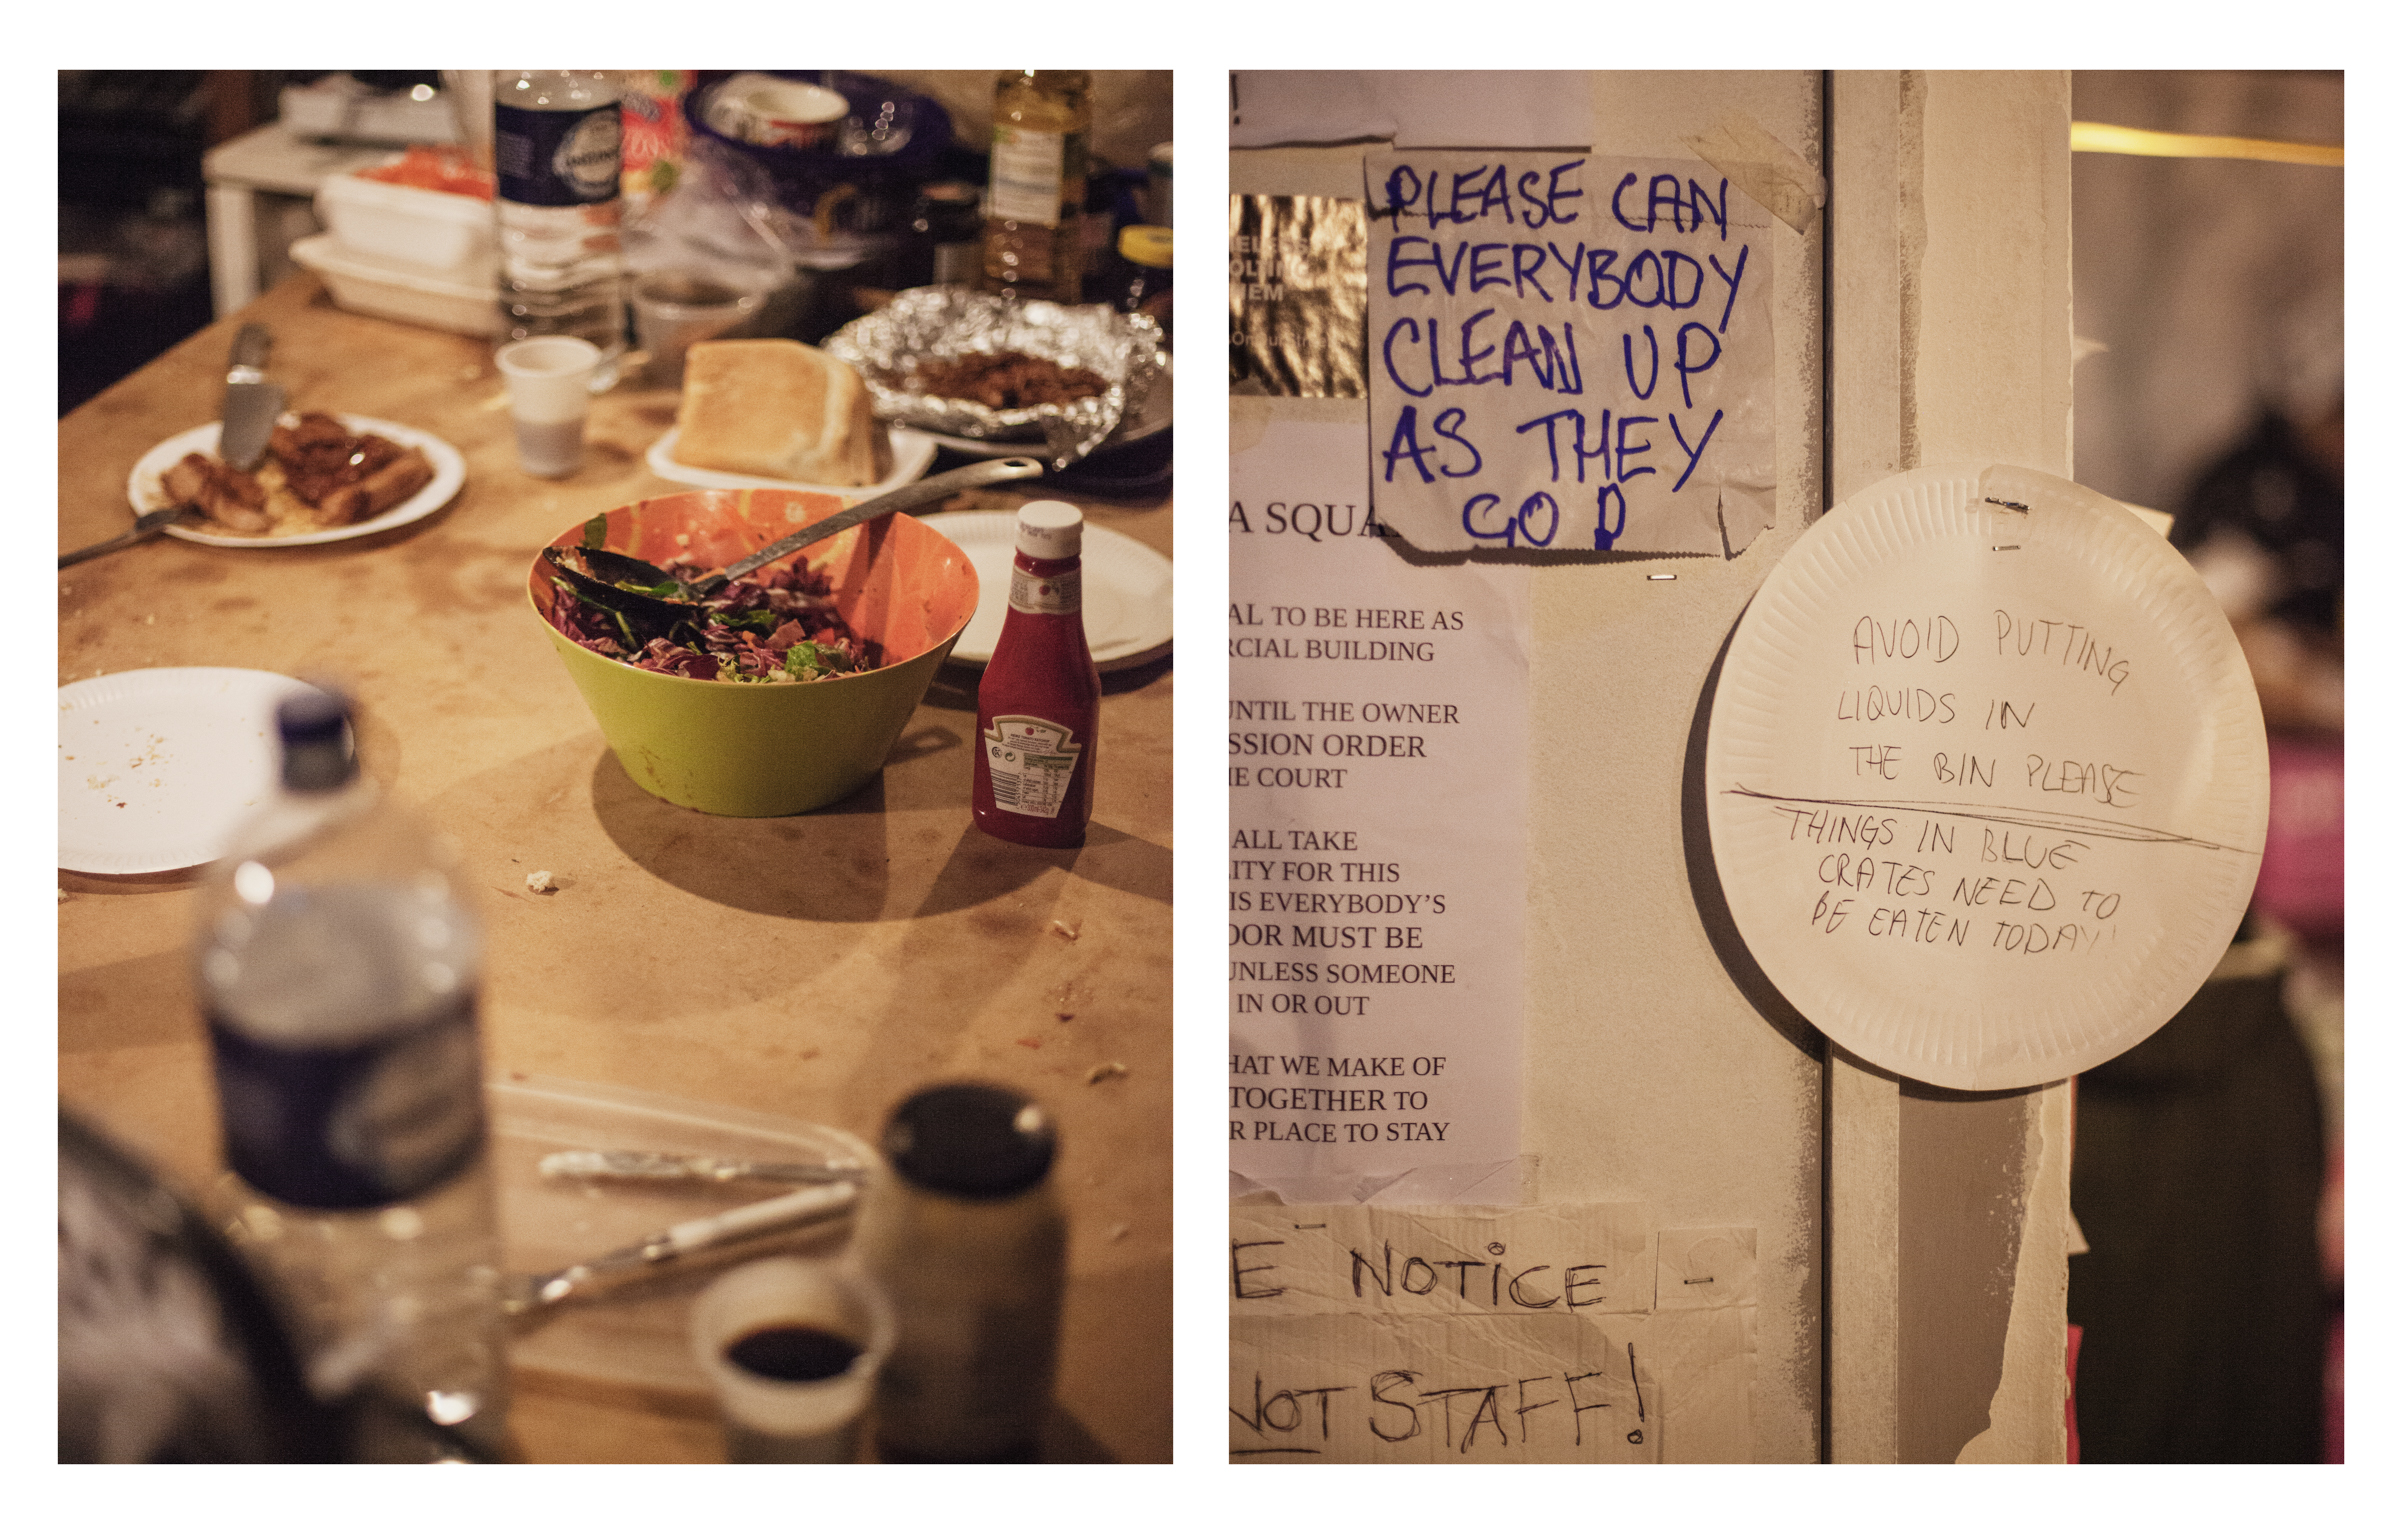 !
PLEASE CAN
EVERYBODY
CLEAN UP
AS THEY
GO P
A SQUA
AL TO BE HERE AS
RCIAL BUILDING
UNTIL THE OWNER
SSION ORDER
HE COURT
ALL TAKE
LITY FOR THIS
IS EVERYBODY'S
OOR MUST BE
UNLESS SOMEONE
IN OR OUT
HAT WE MAKE OF
TOGETHER TO
R PLACE TO STAY
E NOTiCE
NOT STAFF!
AVOID PUTTING
LIQUIDS IN
THE BIN PLEASE
THINGS IN BLUE
CRATES NEED TO
BE EATEN TODAY!